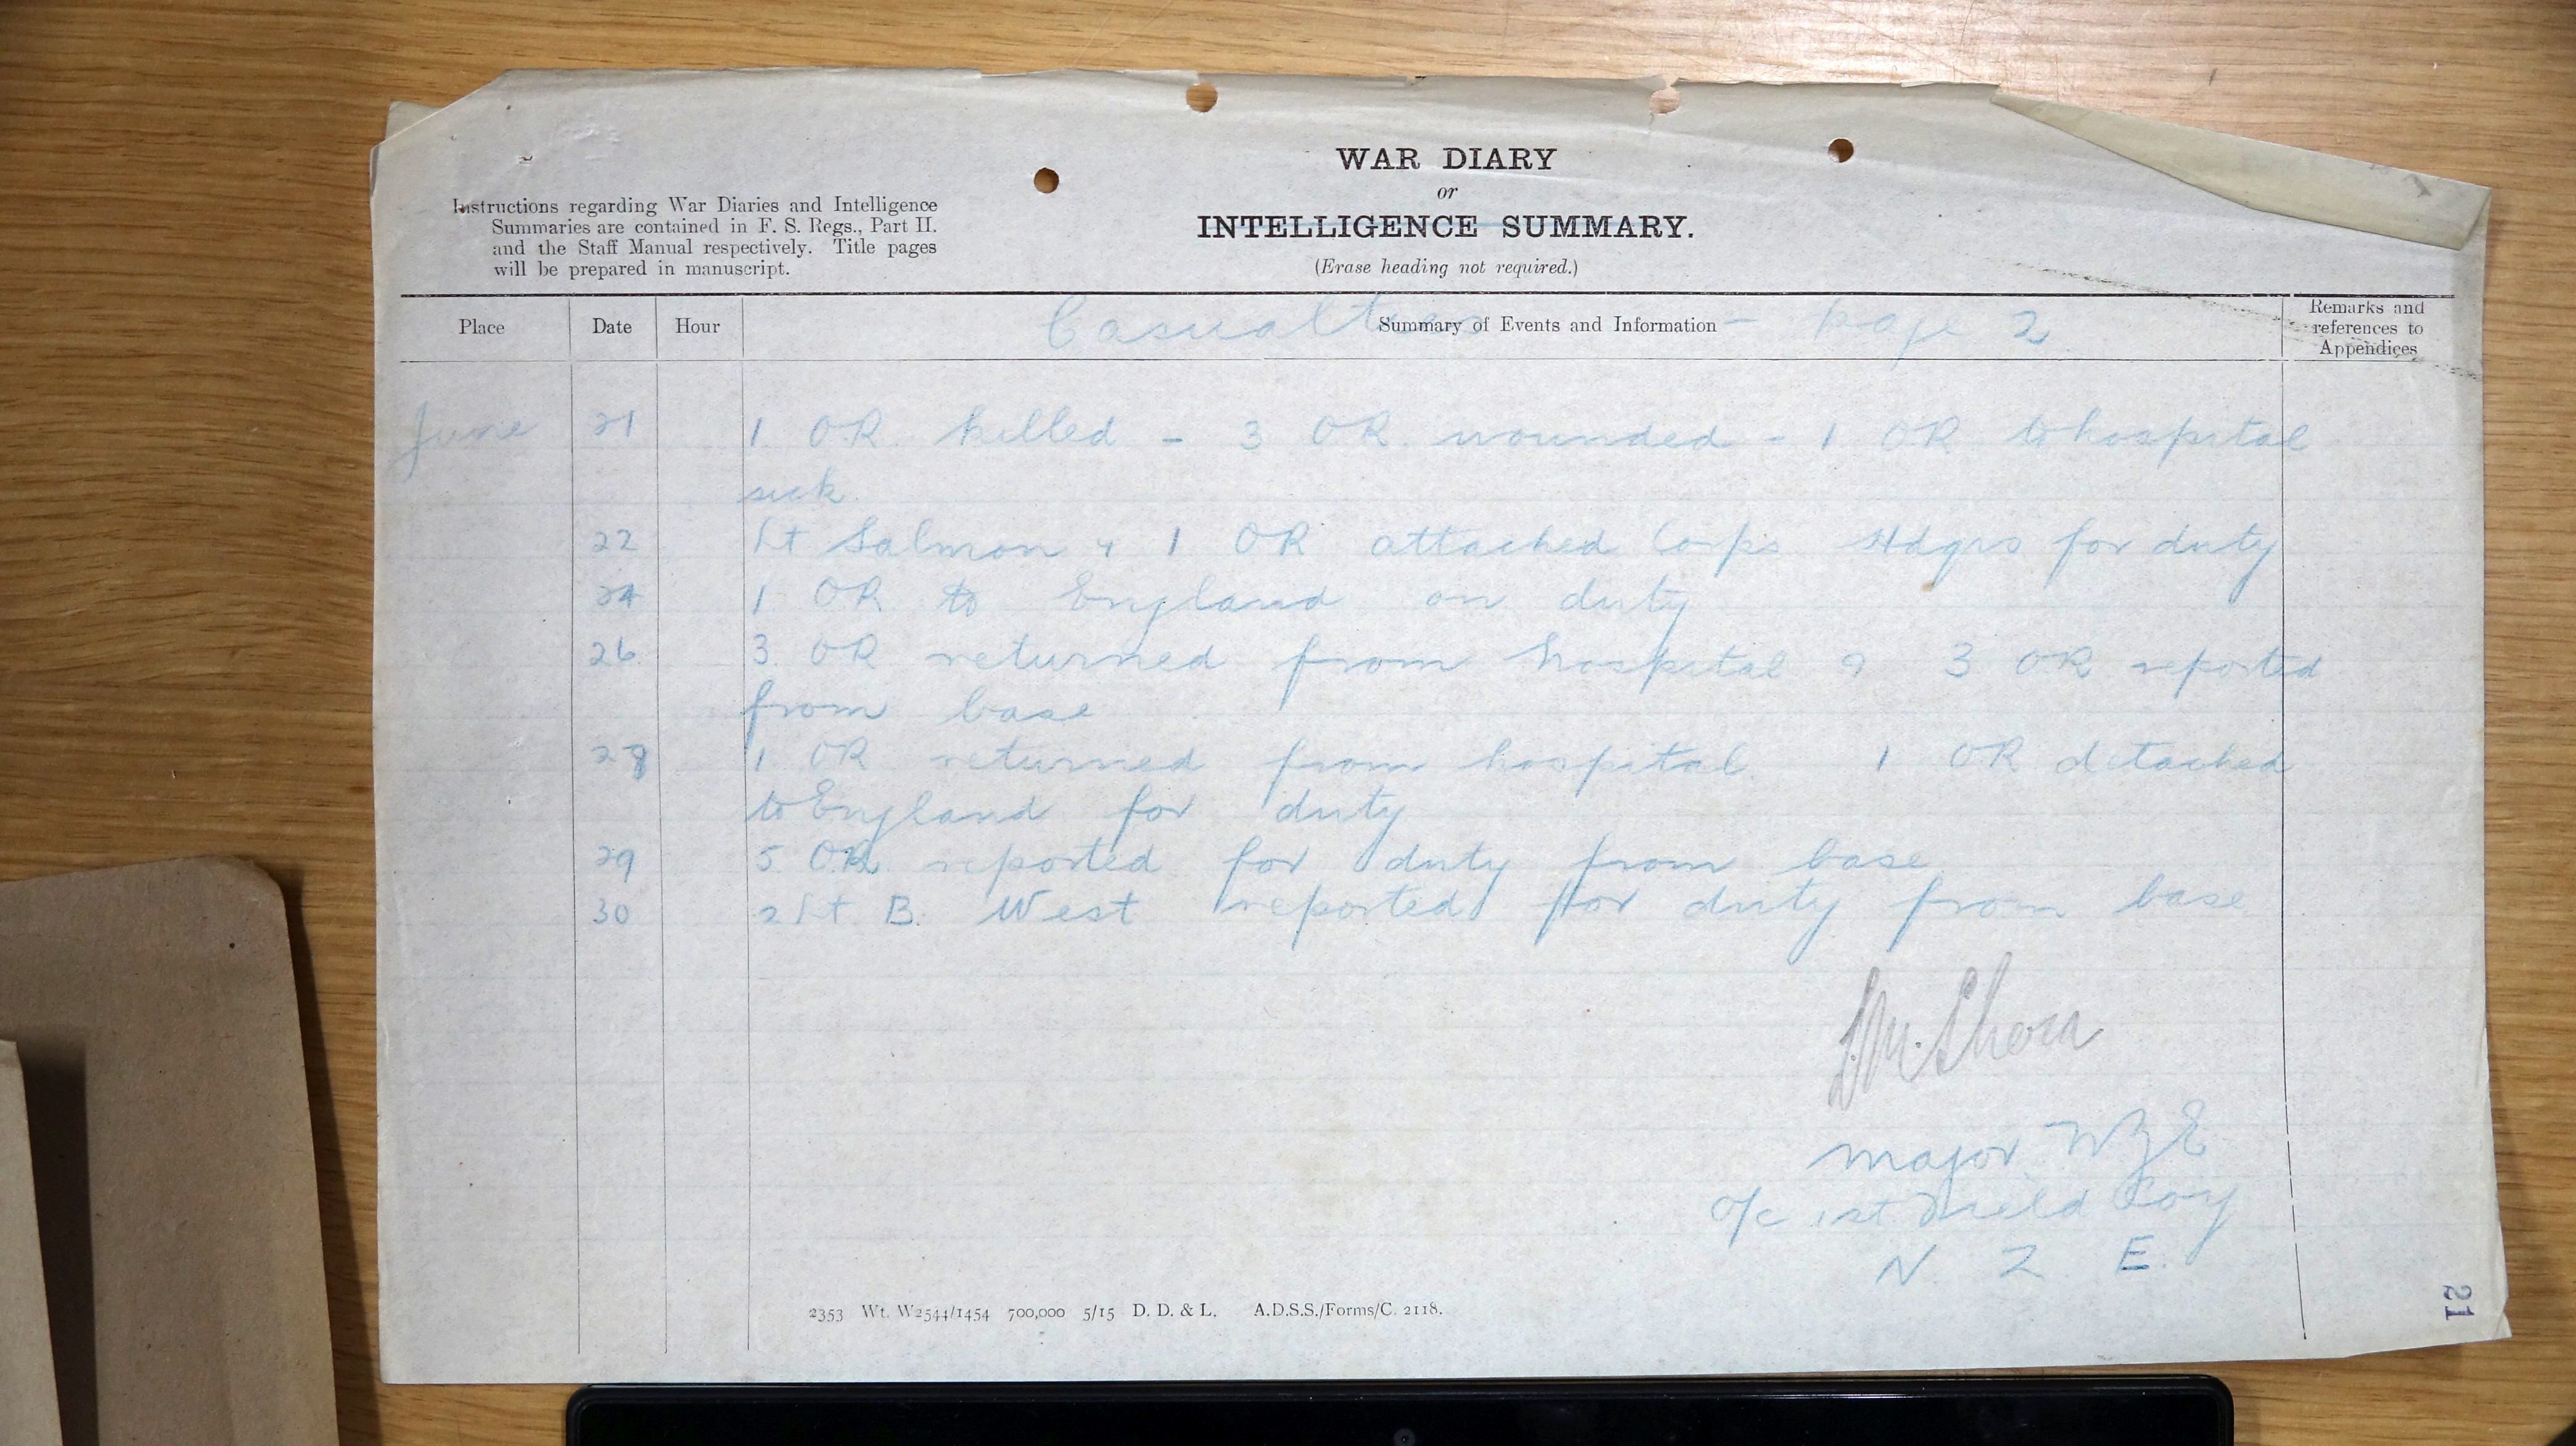 WAR DIARY
or
INTELLIGENCE SUMMARY.
(Erase heading not required.)
Instructions regarding War Diaries and Intelligence
Summaries are contained in F. S. Regs., Part II.
and the Staff Manual respectively. Title pages
will be prepared in manuscript.
Place Date Hour Summary of Events and Information Remarks and references to Appendices
Casualties - page 2
June 21 1 OR killed - 3 OR wounded - 1 OR to hospital
sick
22 Lt Salmon & 1 OR attached Corps Hdqrs for duty
24 1 OR to England on duty
26 3 OR returned from hospital & 3 OR reported
from base
28 1 OR returned from hospital 1 OR detached
to England for duty
29 5 OR reported for duty from base
30 2 Lt B. West reported for duty from base
Major NZE
o/c 1st Field Coy
N Z E.
2353 Wt. W2544/1454 700,000 5/15 D. D. & L. A.D.S.S./Forms/C. 2118.
21